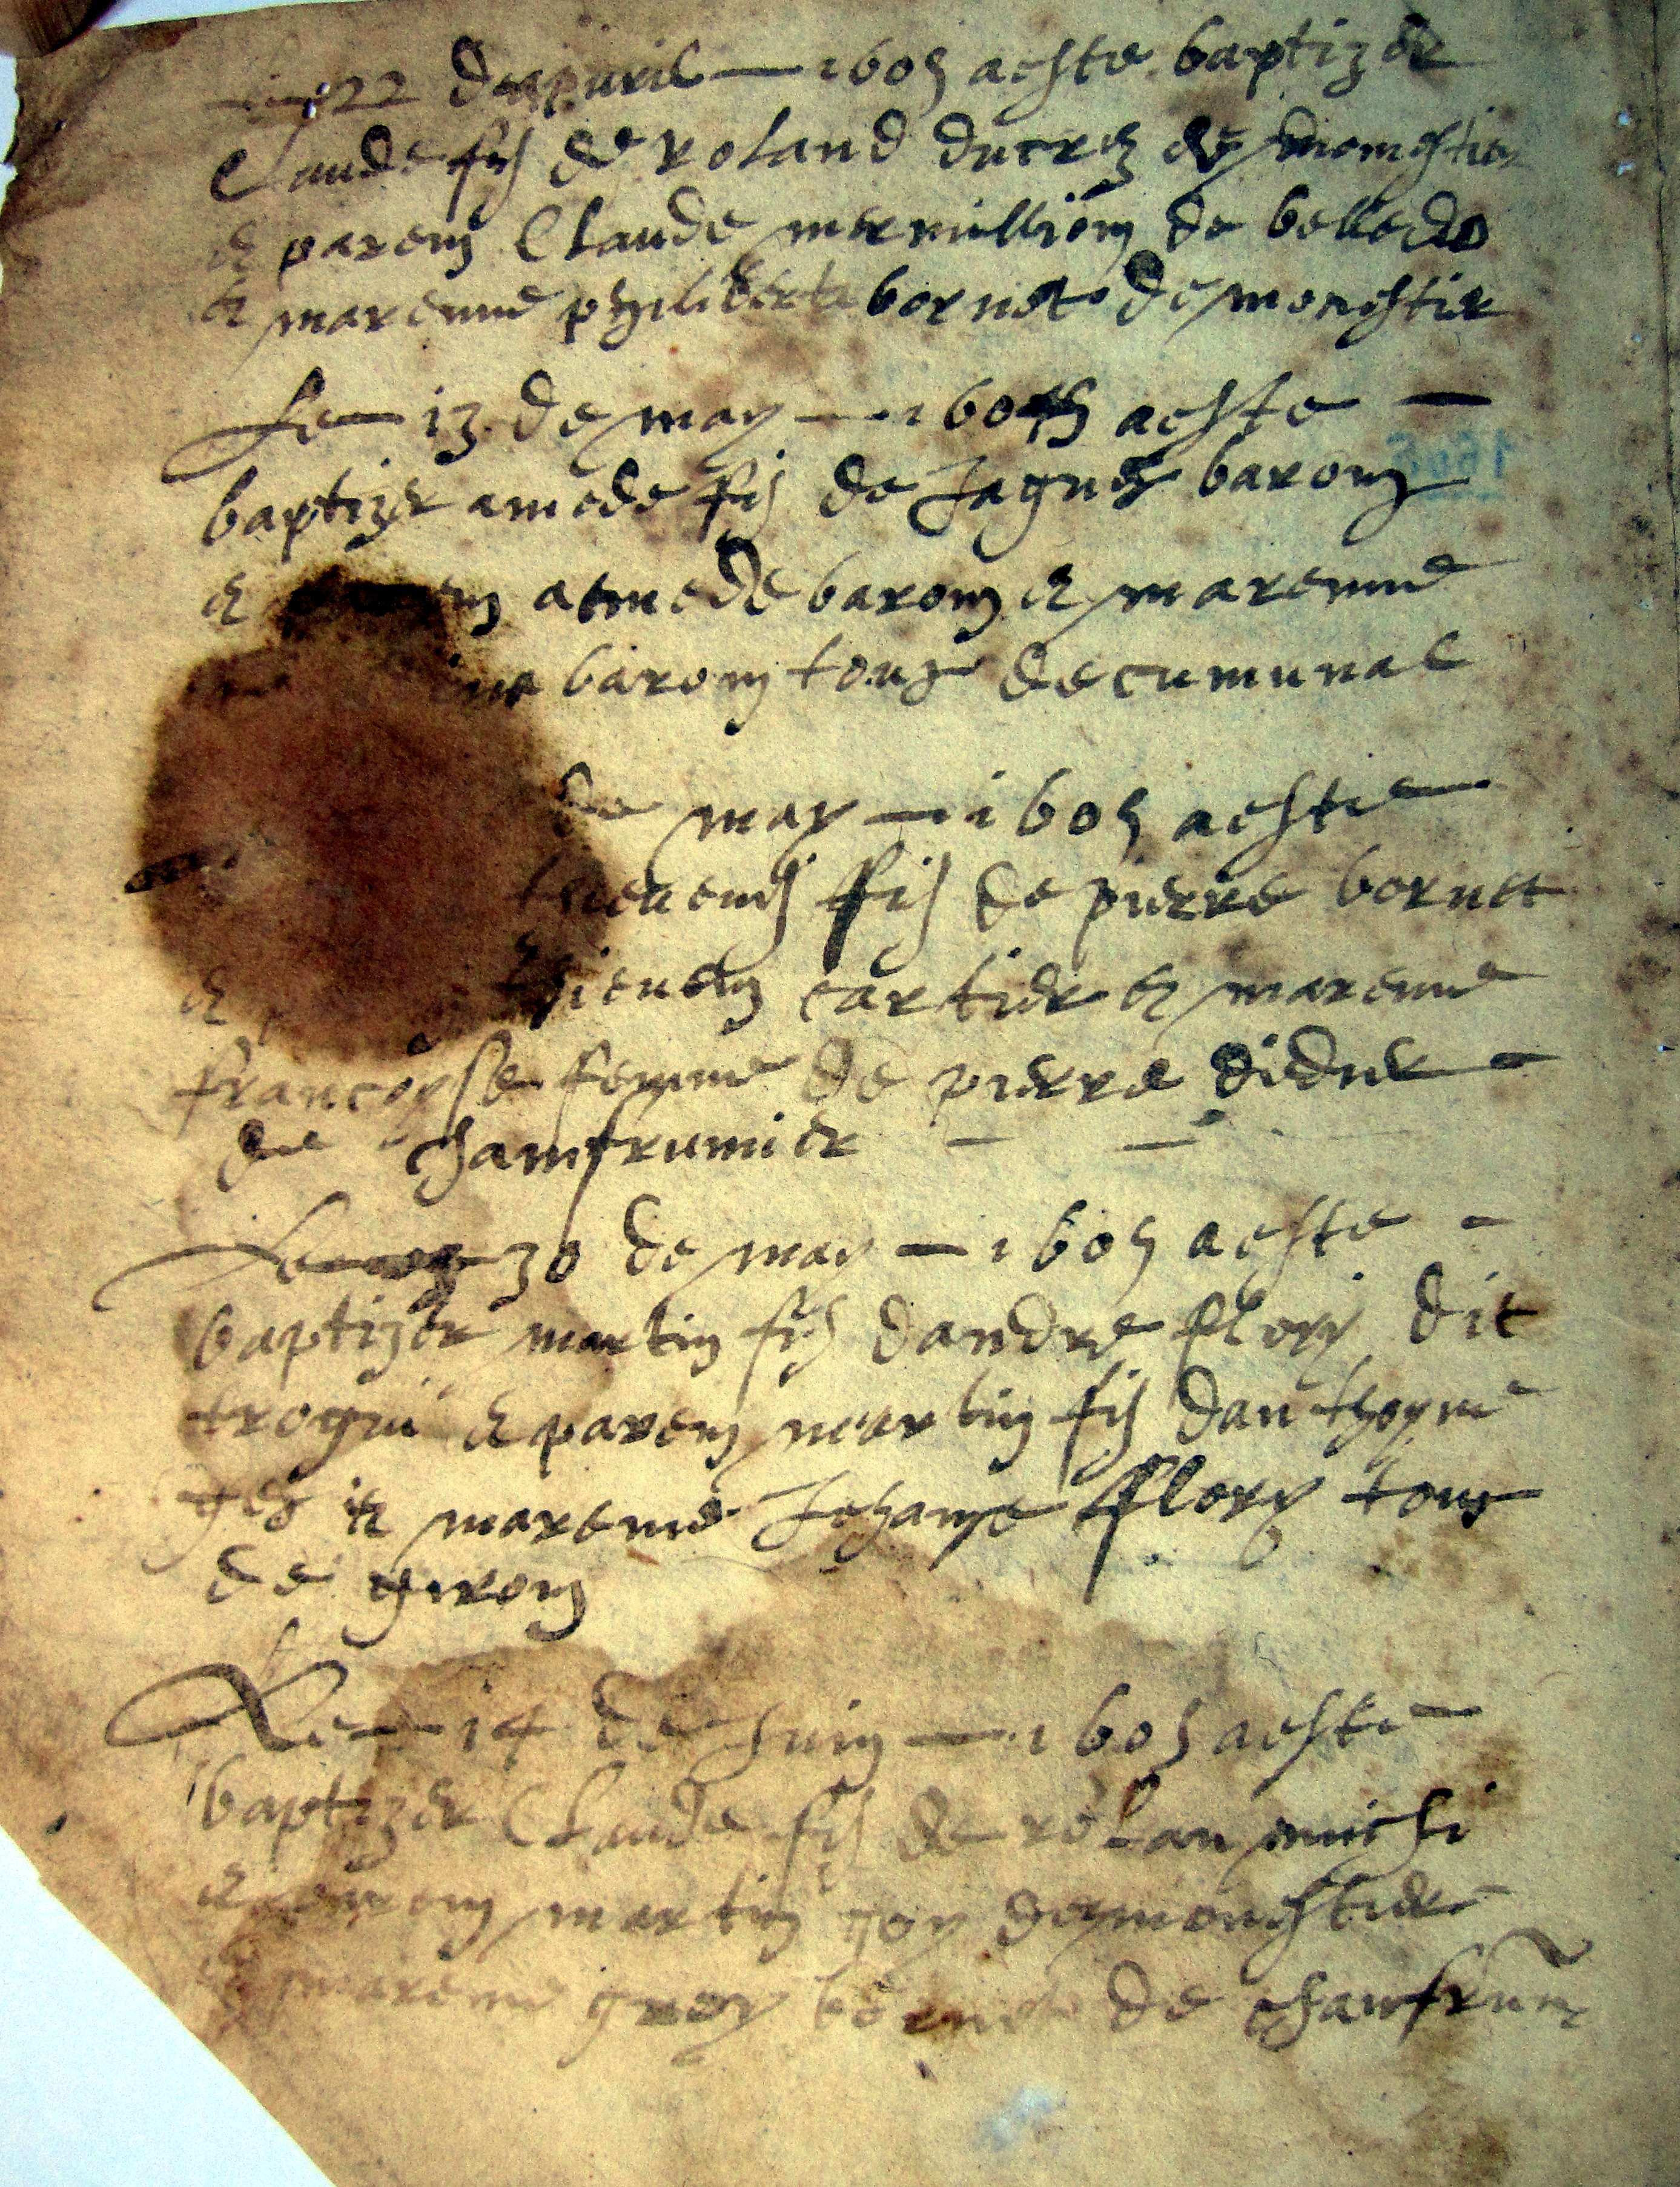 22 dapuril 1605 aeste baptizer
Claude fis de roland ducrez de monestier
et parein Claude mermillion de belledo
et marenne philiberte bornet de monestier
1605
Le 13 de may 1605 aeste
baptizer amede fis de Jaques baron
et amede baron et marenne
baron tous de cumunal
de may 1605 aeste
fis de pierre bornet
et cartier et marenne
francoyse femme de pierre didier
de chamfrumier
Le 30 de may 1605 aeste
baptizer martin fis dandre flory dit
trogni et parein martin fis danthoyne
et marenne Jehanne fflory tous
de giron
Le 14 de Juin 1605 aeste
baptizer Claude fis de rolan
et parein martin goy de monestier
et marenne de